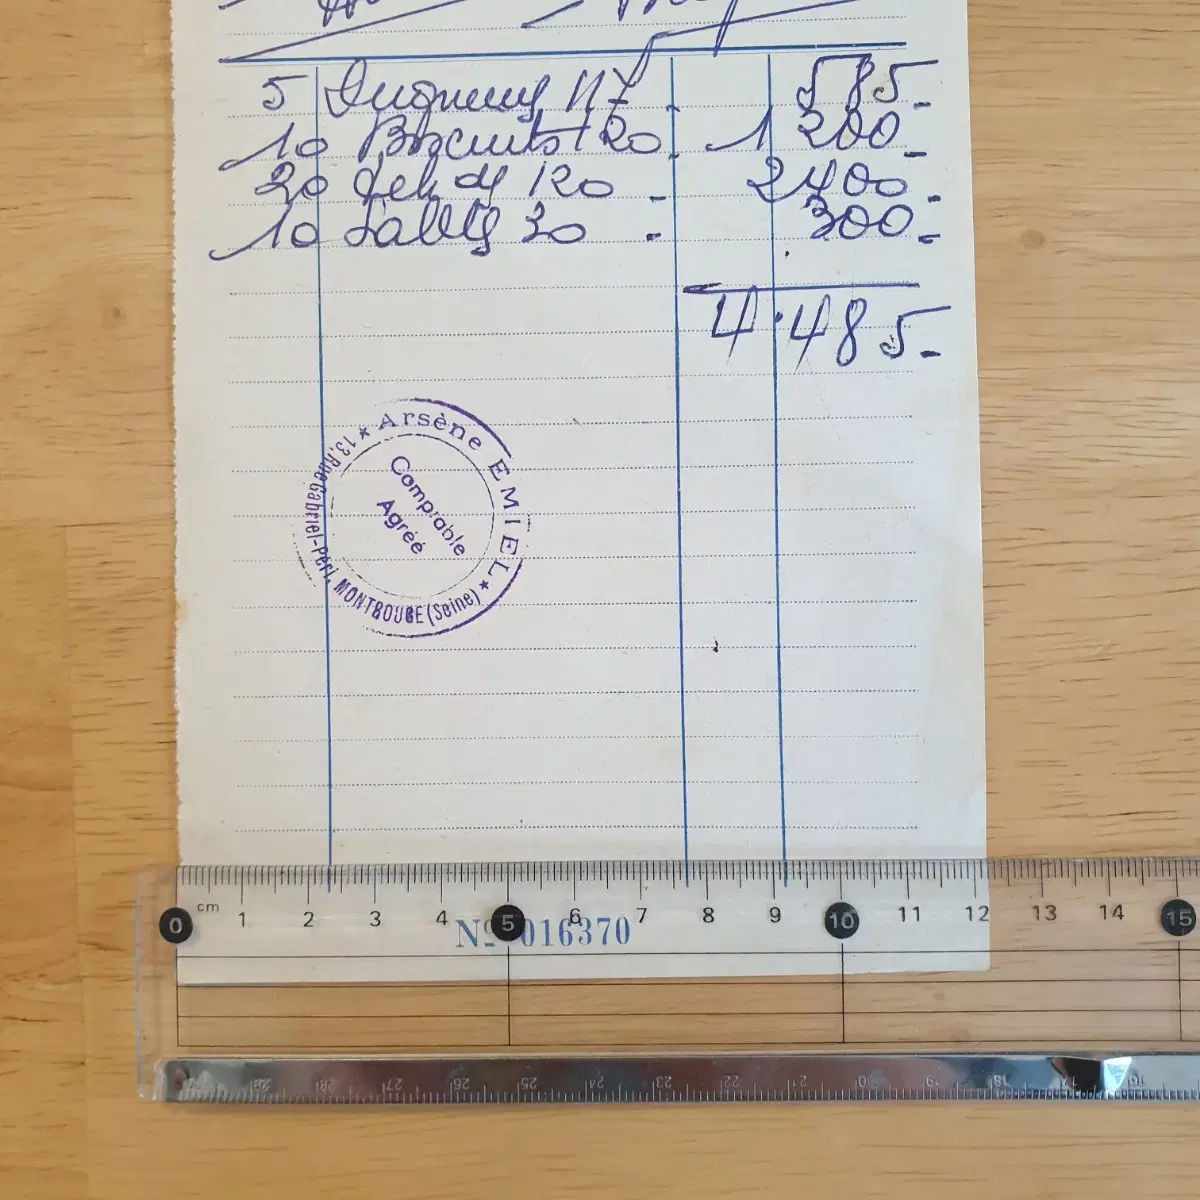 5 117 - 585-
10 Biscuits 120 - 1 200-
20 120 - 2400-
10 Sablés 30 - 300-
4.485-
★ Arsène EMIEL ★
13, Rue Gabriel-Péri, MONTROUGE (Seine)
Comptable
Agréé
0 cm 1 2 3 4 5 6 7 8 9 10 11 12 13 14 15
Nº 016370
29 28 27 26 25 24 23 22 21 20 19 18 17 16